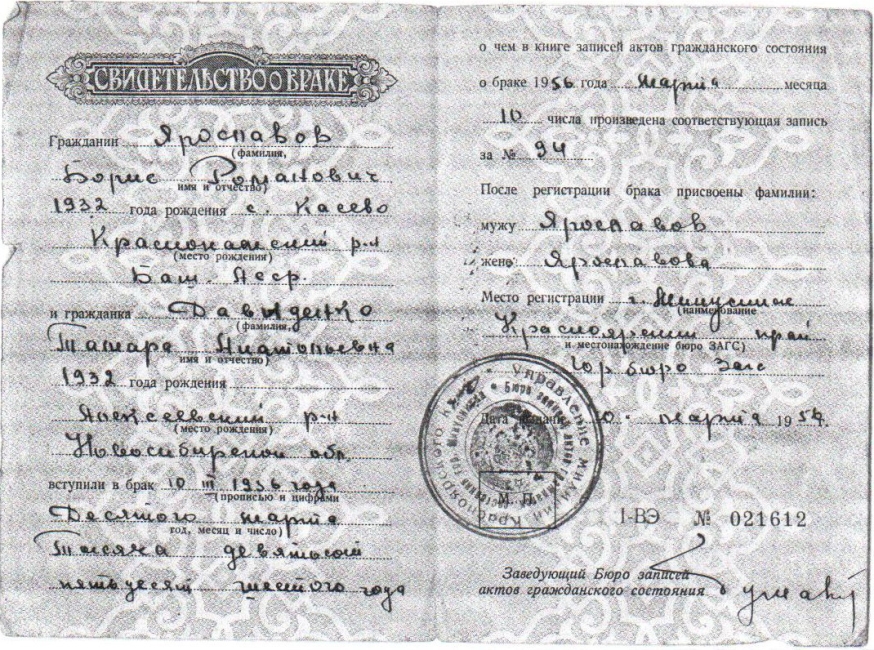 СВИДЕТЕЛЬСТВО О БРАКЕ
Гражданин Ярославов
(фамилия,
Борис Романович
имя и отчество)
1932 года рождения с. Касево
Краснокамский р-н
(место рождения)
Баш. Асср.
и гражданка Давиденко
(фамилия,
Тамара Анатольевна
имя и отчество)
1932 года рождения
Алексеевский р-н
(место рождения)
Новосибирской обл.
вступили в брак 10 III 1956 года
(прописью и цифрами
Десятого марта
год, месяц и число)
Тысяча девятьсот
пятьдесят шестого года
о чем в книге записей актов гражданского состояния
о браке 1956 года марта месяца
10 числа произведена соответствующая запись
за № 94
После регистрации брака присвоены фамилии:
мужу Ярославов
жене Ярославова
Место регистрации г. Минусинск
(наименование
Красноярский край
и местонахождение бюро ЗАГС)
Гор бюро Загс
Дата выдачи 10 марта 1956 г.
М. П.
I-ВЭ № 021612
Заведующий Бюро записей
актов гражданского состояния